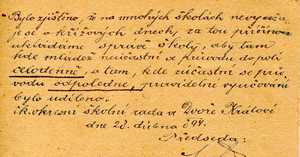 Bylo zjištěno, že na mnohých školách nevyučuje
se o křížových dnech, za tou příčinou
ukládáme správě školy, aby tam
kde mládež nesúčastní se průvodu do polí
celodenně, a tam, kde zúčastní se prů-
vodu odpoledne, pravidelné vyučování
bylo uděleno.
C.k. okresní školní rada v Dvoře Králové
dne 28. dubna 894.
Předseda: